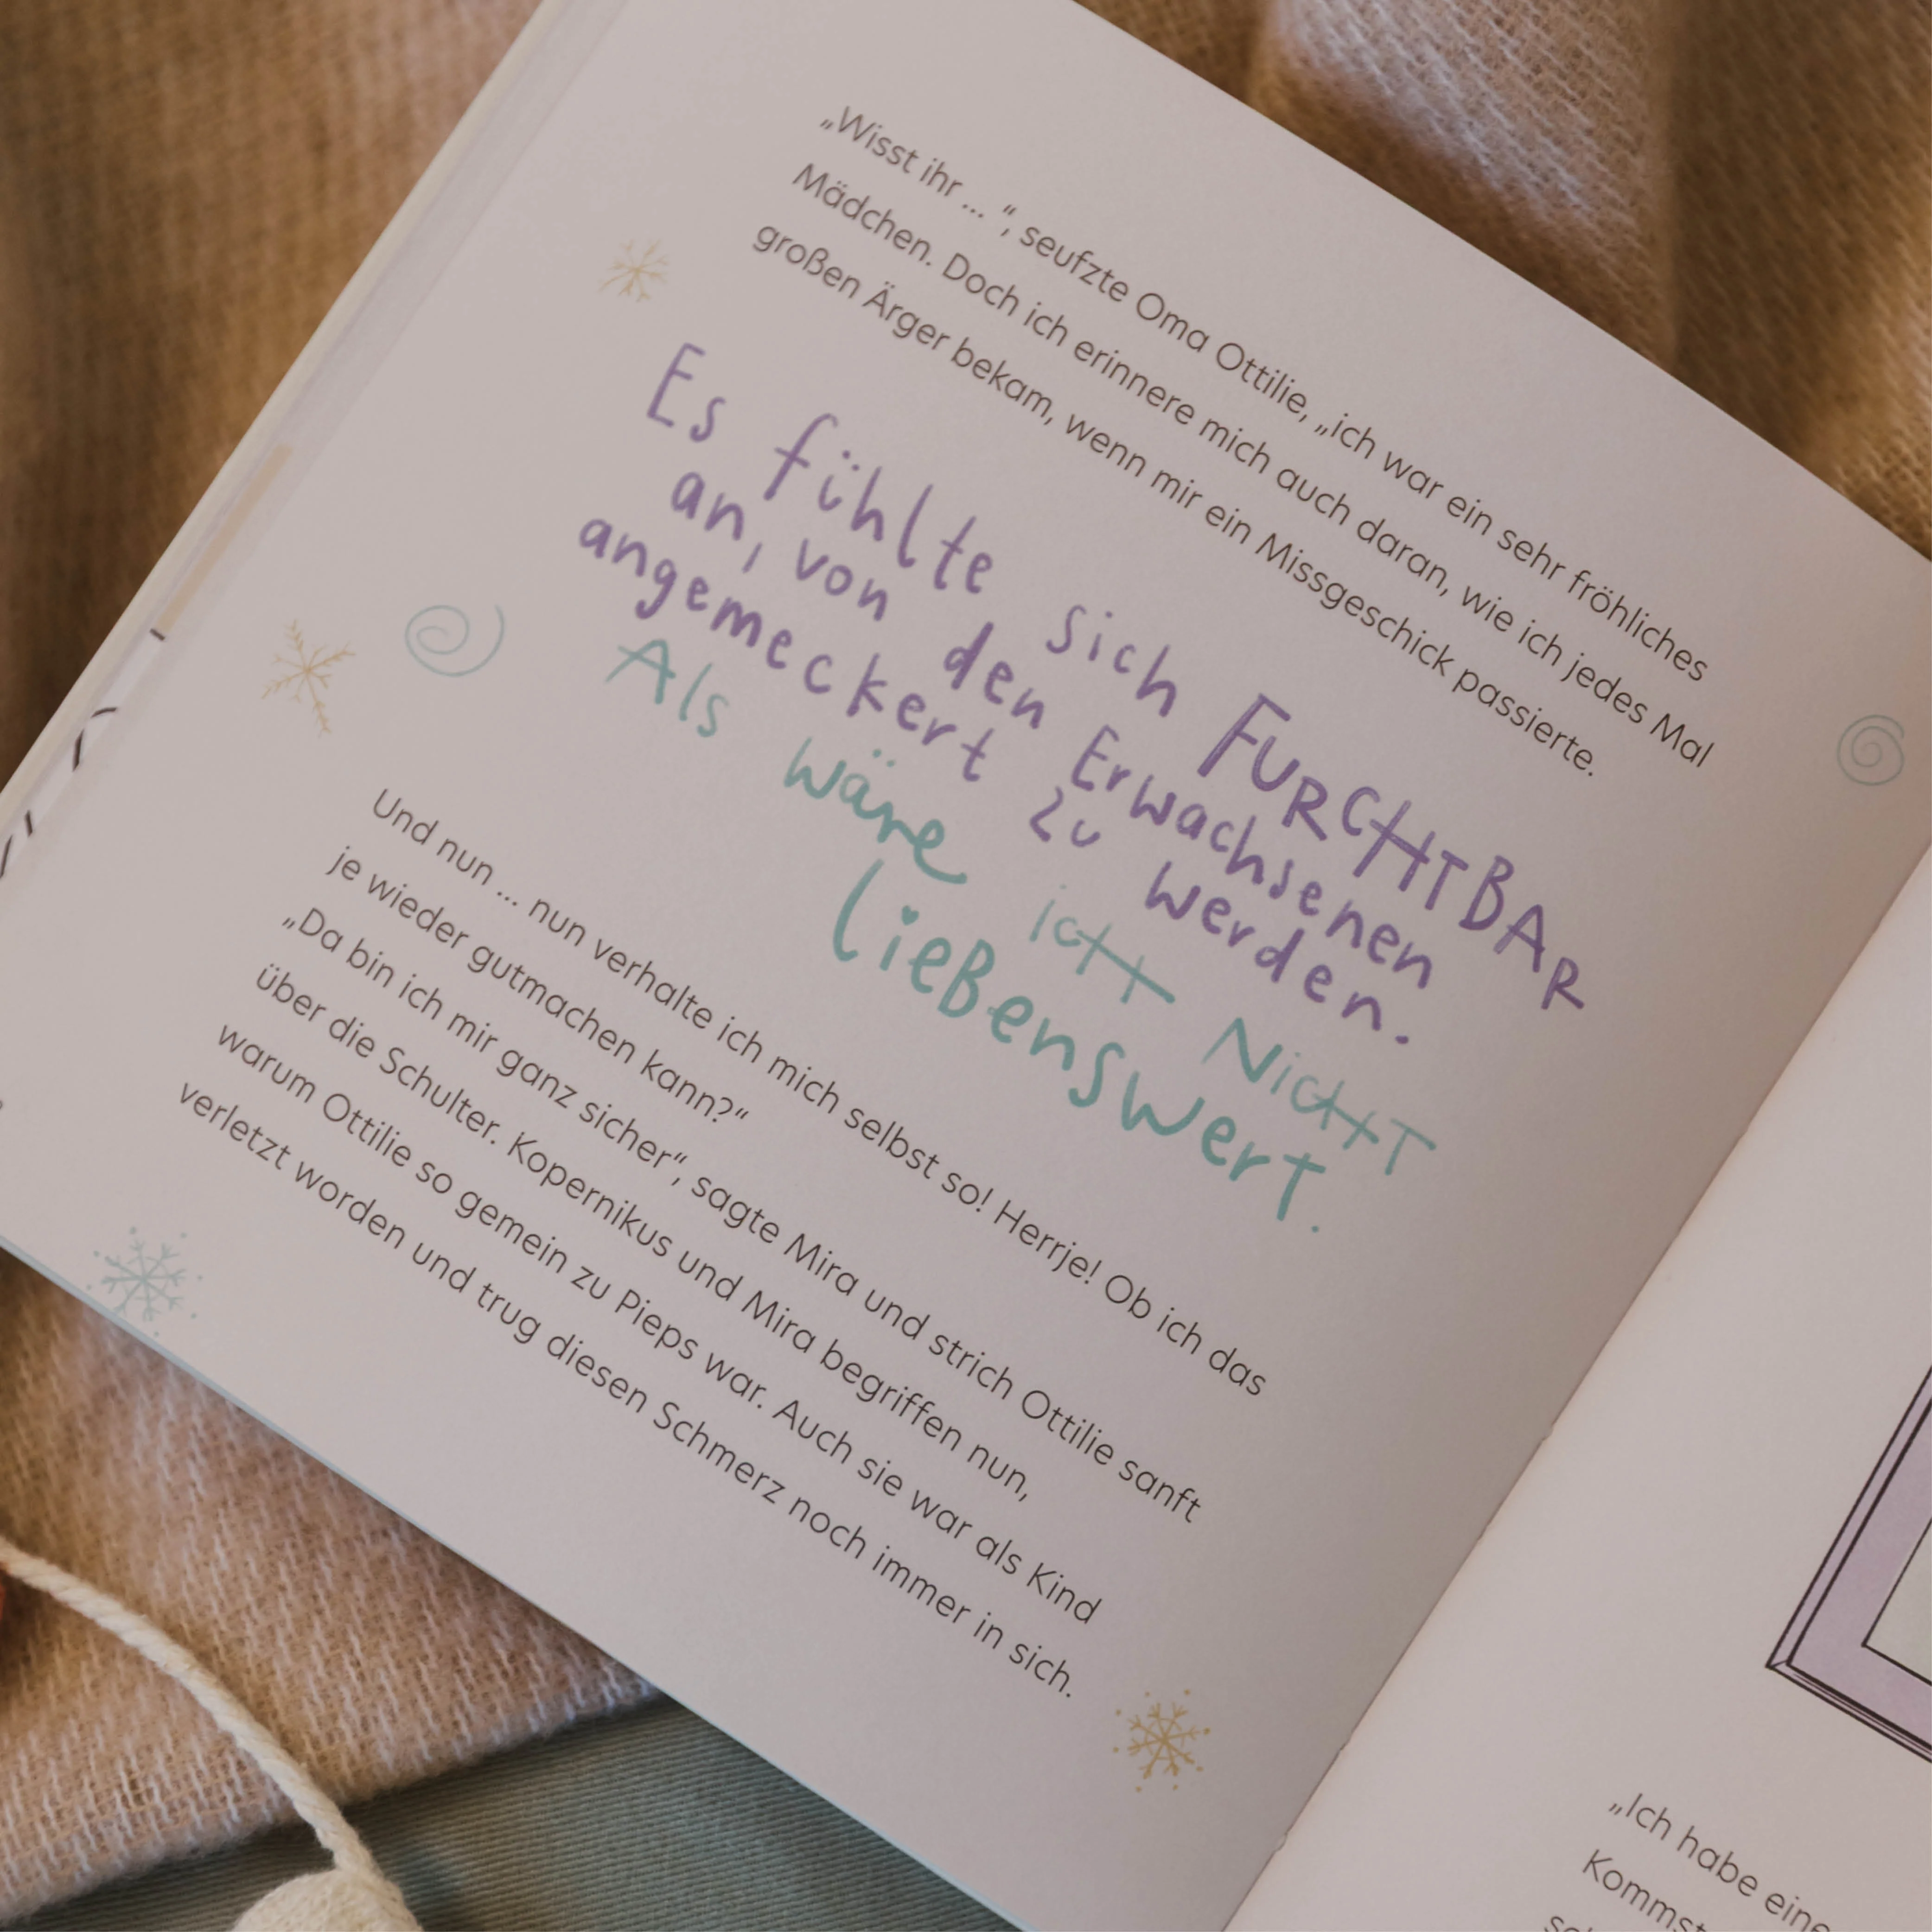 „Wisst ihr ... “, seufzte Oma Ottilie, „ich war ein sehr fröhliches
Mädchen. Doch ich erinnere mich auch daran, wie ich jedes Mal
großen Ärger bekam, wenn mir ein Missgeschick passierte.
Es fühlte sich FURCHTBAR
an, von den Erwachsenen
angemeckert zu werden.
Als wäre ich NicHT
lieBenswerT.
Und nun ... nun verhalte ich mich selbst so! Herrje! Ob ich das
je wieder gutmachen kann?“
„Da bin ich mir ganz sicher“, sagte Mira und strich Ottilie sanft
über die Schulter. Kopernikus und Mira begriffen nun,
warum Ottilie so gemein zu Pieps war. Auch sie war als Kind
verletzt worden und trug diesen Schmerz noch immer in sich.
„Ich habe eine